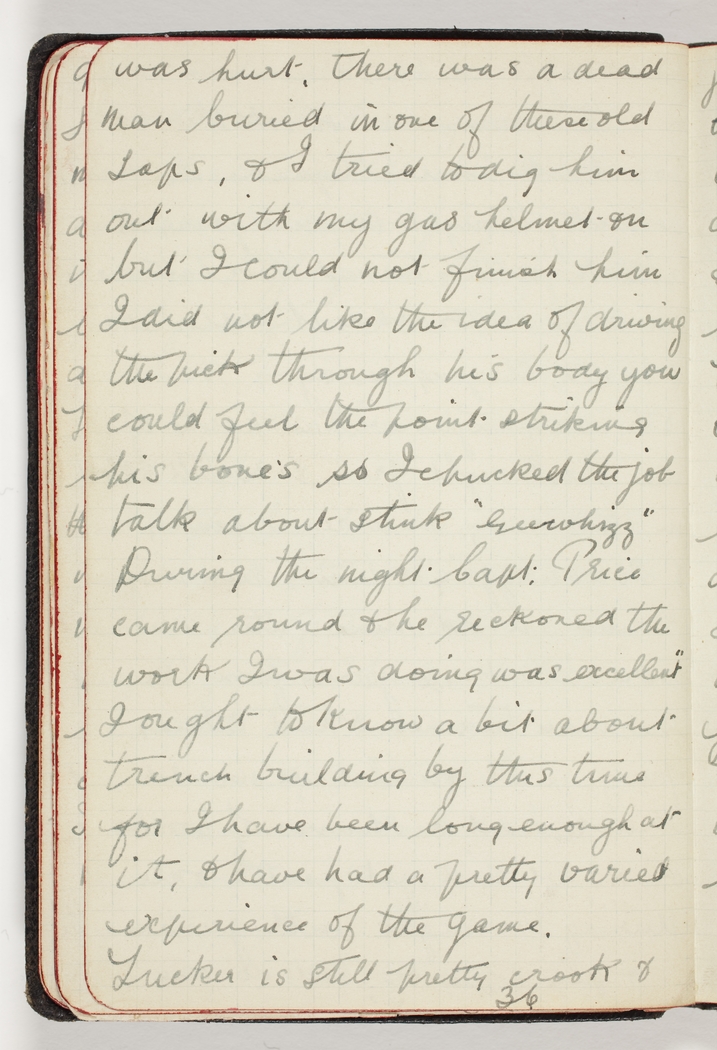 was hurt. There was a dead
man buried in one of these old
saps, & I tried to dig him
out with my gas helmet on
but I could not finish him
I did not like the idea of driving
the pick through his body you
could feel the point striking
his bones so I chucked the job
talk about stink "Geewhizz"
During the night Capt. Price
came round & he reckoned the
work I was doing was excellent"
I ought to know a bit about
trench building by this time
for I have been long enough at
it, & have had a pretty varied
experience of the game.
Tucker is still pretty crook &
36